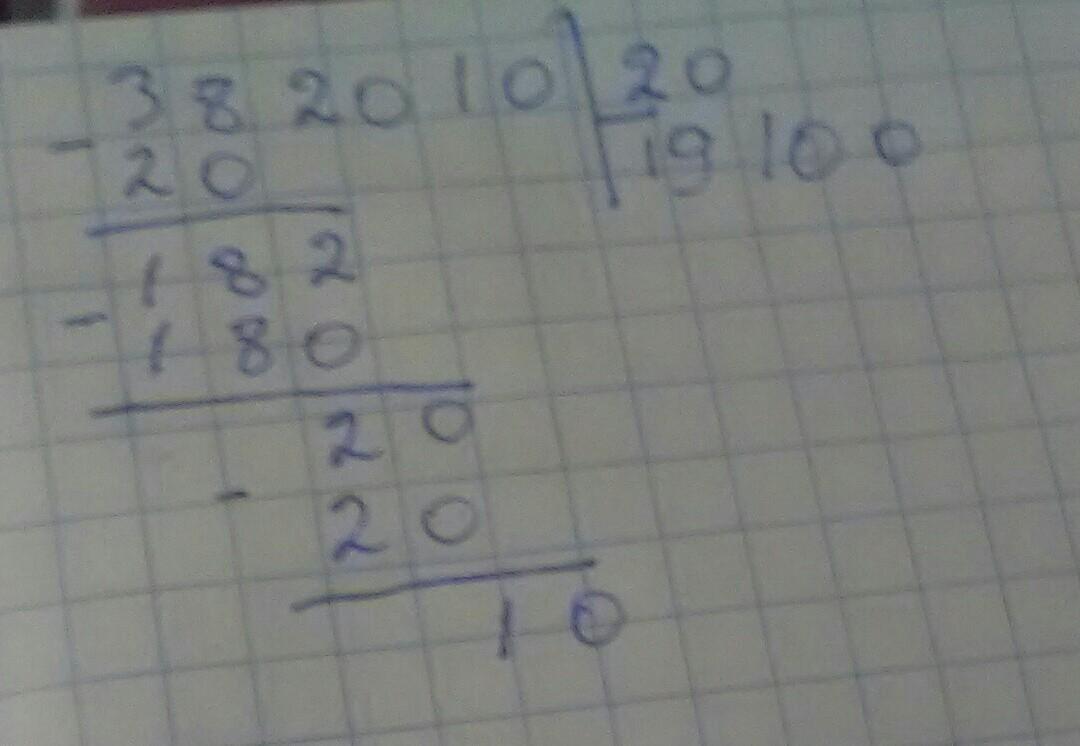 382010 20
- 20 19100
182
- 180
20
- 20
10